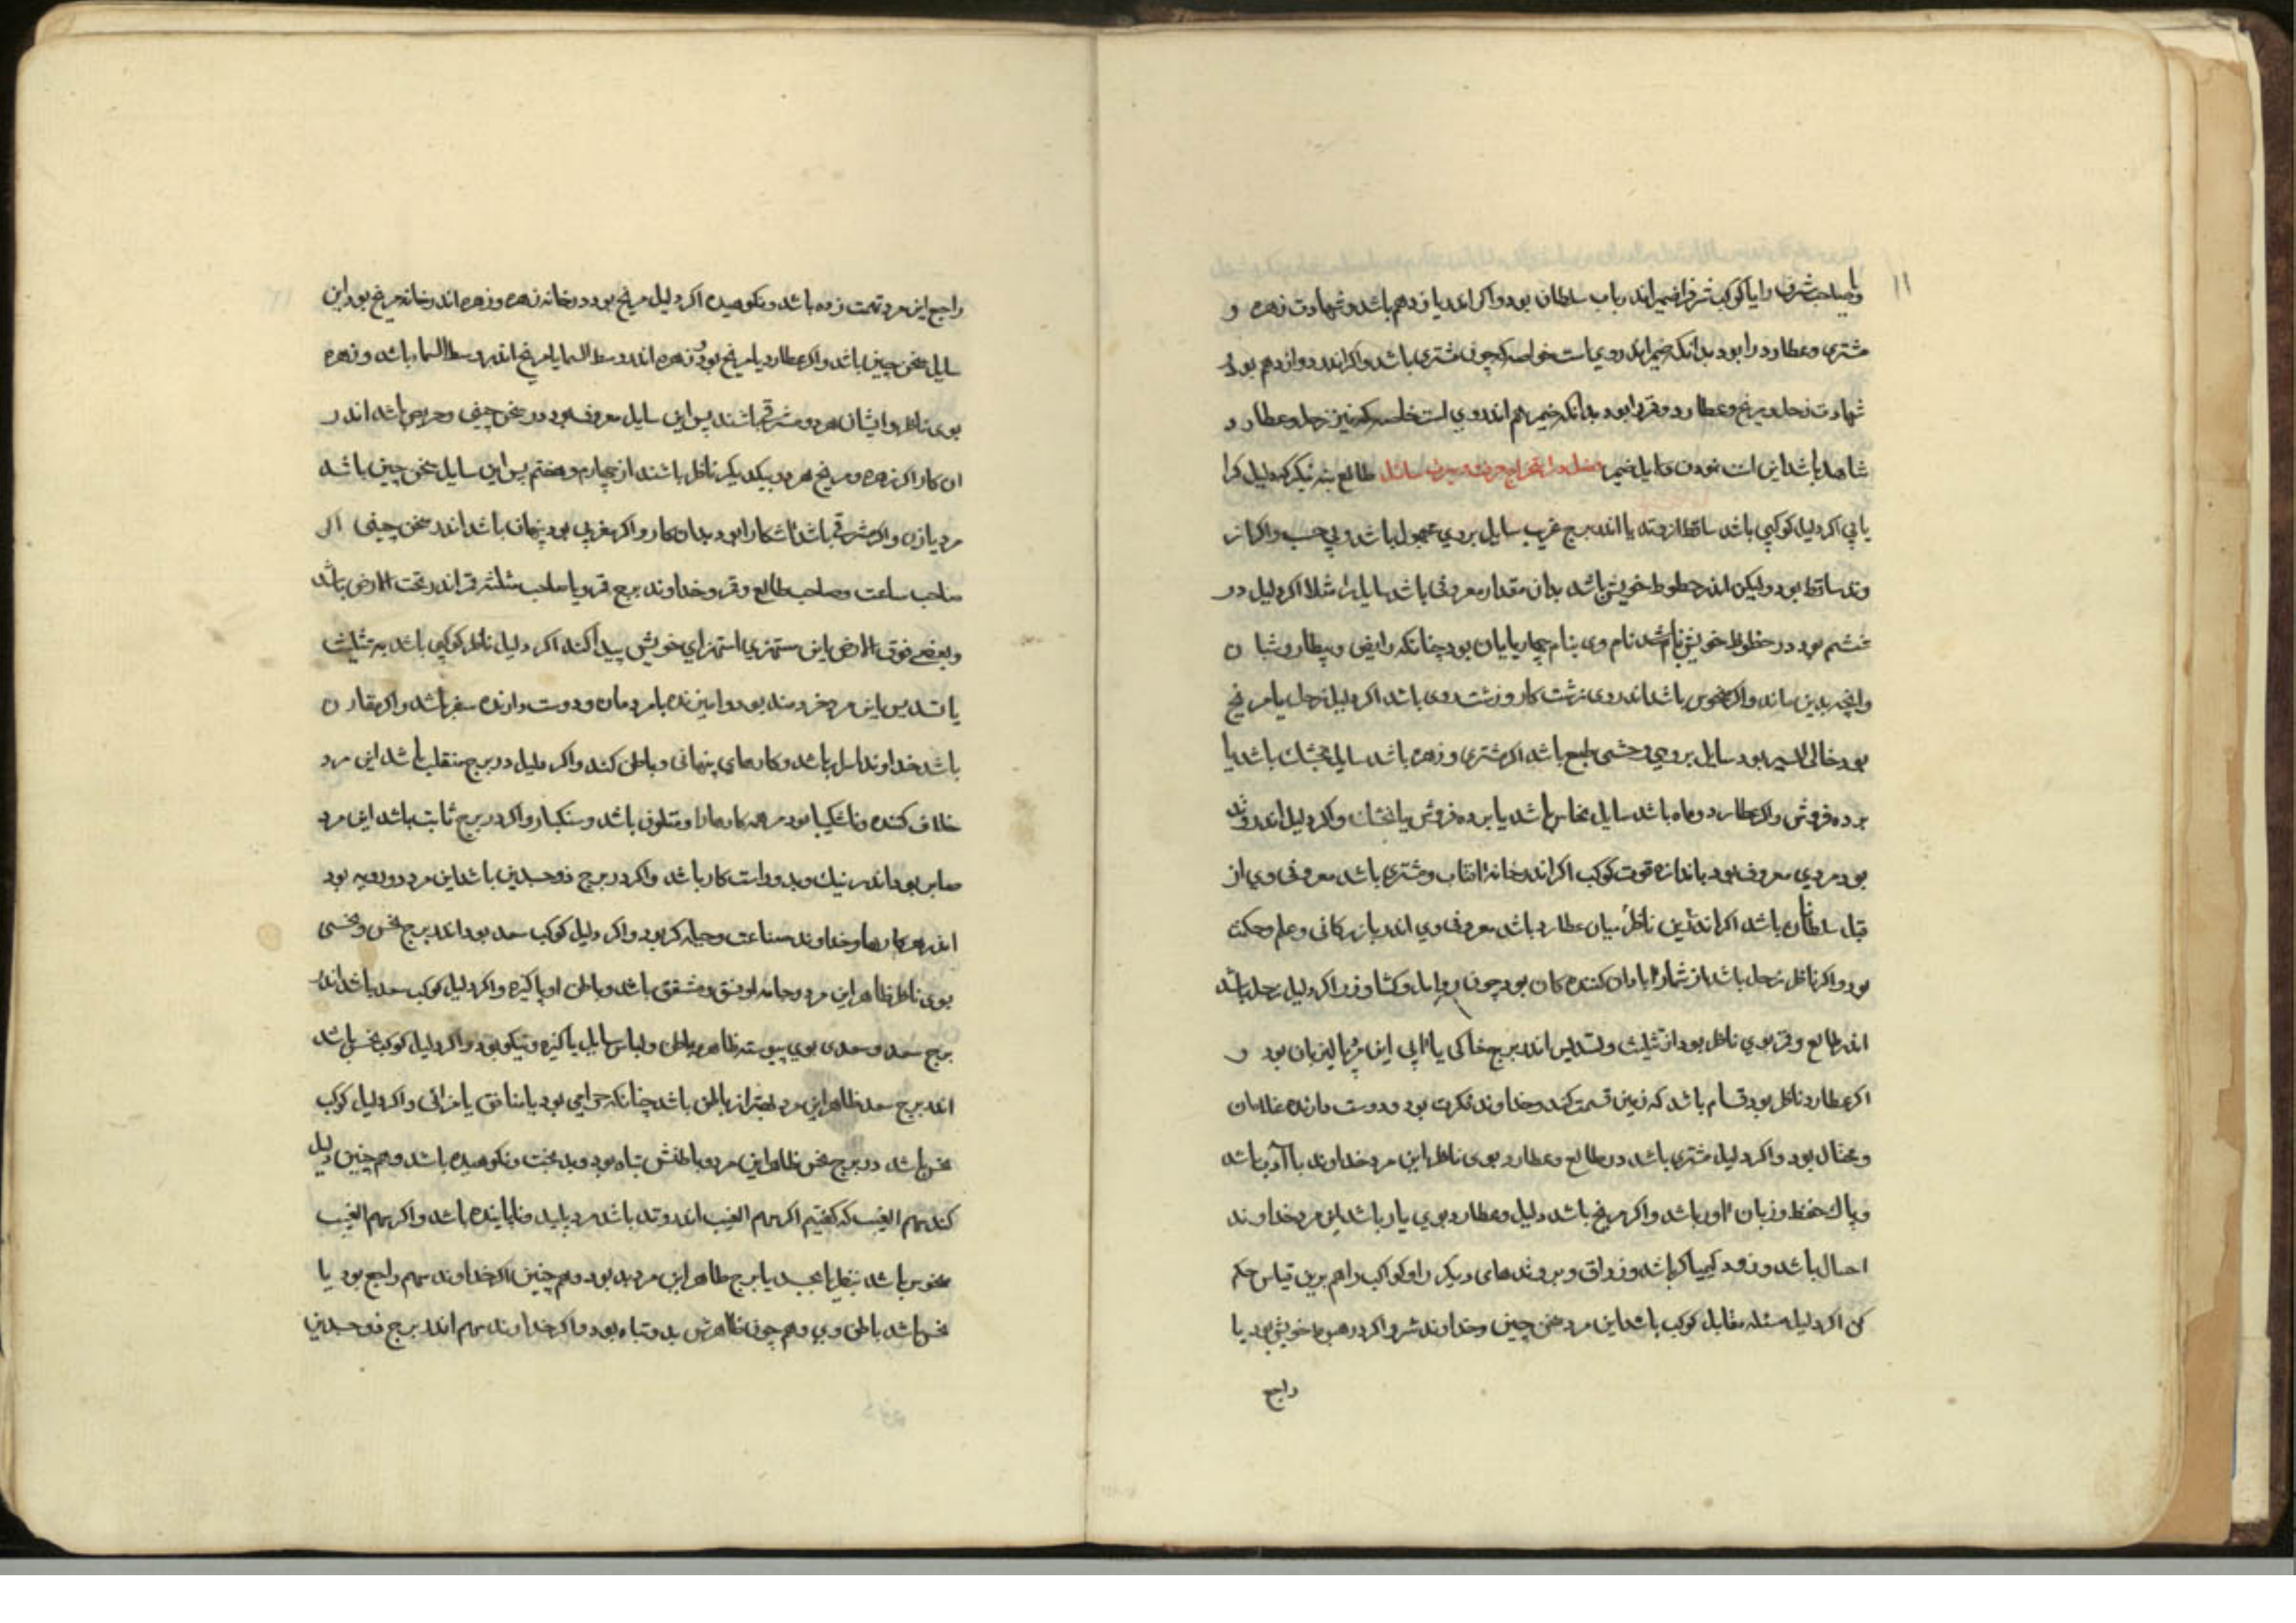 ۱۱
یا صاحب شرف را یا کوکب شرف را ضمیر اندر باب سلطان بود و اکر اندر یازدهم باشد و شهادت زهره و
مشتری و عطارد را بود بدانکه ضمیر اندر روی است خواصه که چون مشتری باشد و اکر اندر دوازدهم بود و
شهادت زحل و مریخ و عطارد و قمر را بود بدانکه ضمیر هم اندر وی است خاصه که نیز زحل و عطارد
شاهد باشد این است نمودن دلایل ضمیر طالع بنه بنکر که دلیل کرا
یابی اکر دلیل کوکبی باشد ساقط از وتد یا اندر برج غریب سایل مردی مجهول باشد و بی حسب و اکر از
وتد ساقط بود ولیکن اندر حظوظ خویش باشد بدان مقدار معروفی باشد سایل را مثلا اکر دلیل در
ششم بود در حظوظ خویش باشد نام وی بنام چهارپایان بود چنانکه رایض و بیطار و شبان
وانچه بدین ماند و اکر منحوس باشد اندر وی زشت کار و زشت روی باشد اکر دلیل زحل یا مریخ
بود خالی السیر بود سایل مردی وحشی طبع باشد اکر مشتری و زهره باشد سایل باشد یا
برده فروش و اکر عطارد و ماه باشد سایل نخاس باشد یا برده فروش یا و اکر دلیل اندر وتد
بود مردی معروف بود باندازه قوت کوکب اکر اندر خانه افتاب و مشتری باشد معروفی وی از
قبل سلطان باشد اکر اندرین ناظر میان عطارد باشد معروفی وی اندر بازرکانی و علم و حکمت
بود و اکر ناظر زحل باشد از شمار ابادان کننده کان بود چون و کشاورز و اکر دلیل زحل باشد
اندر طالع و قمر بوی ناظر بود از تثلیث و تسدیس اندر برج خاکی یا ابی این مرد پالیزبان بود و
اکر عطارد ناظر بود قسام باشد که زمین قسمت کند و خداوند فکرت بود و دوست دارنده غلامان
و بود و اکر دلیل مشتری باشد در طالع و عطارد بوی ناظر این مرد خداوند باشد
و پاک حفظ و زبان اور باشد و اکر مریخ باشد دلیل و عطارد بوی یار باشد این مرد خداوند
باشد و زود کیمیاکر باشد و زراق و بروندهای دیکر را و کواکب را هم برین قیاس حکم
کن اکر دلیل مسئله مقابل کوکب باشد این مرد سخن چین و خداوند شر و اکر در خویش بود یا
راجع
راجع این مرد تهمت زده باشد و نکوهیده اکر دلیل مریخ بود در خانه زهره و زهره اندر خانه مریخ بود این
سایل سخن چین باشد و اکر عطارد یا مریخ بود و زهره اندر وسط السما یا مریخ اندر وسط السما باشد و زهره
بوی ناظر و ایشان هر دو مشرقی باشند پس این سایل معروف بود در سخن چینی و حریص باشد اندر
ان کار اکر زهره و مریخ هر دو بیکدیکر ناظر باشند از چهارم و هفتم پس این سایل سخن چین باشد
مر یازان و اکر مشرقی باشد اشکارا بود بدان کار و اکر مغربی بود پنهان باشد اندر سخن چینی اکر
صاحب ساعت و صاحب طالع و قمر و خداوند برج قمر و یا صاحب مثلثه قمر اندر تحت الارض باشد
و بعضی فوق الارض این مستهزی استهزای خویش پیدا کند اکر دلیل ناظر کوکبی باشد به تثلیث
یا تسدیس این مرد خردمند بود و امیزنده با مردمان و دوست دارنده سفر باشد و اکر مقارن
باشد خداوند اسرار باشد و کارهای پنهانی و باطن کند و اکر دلیل در برج منقلب باشد این مرد
خلاف کننده و ناشکیبا بود مر همه کارها را و متلون باشد و سبکبار و اکر در برج ثابت باشد این مرد
صابر بود اندر نیک و بد و راست کار باشد و اکر در برج ذوجسدین باشد این مرد دورویه بود
اندر همه کارها و خداوند صناعت و حیله کر بود و اکر دلیل کوکب سعد بود اندر برج نحس و نحسی
بوی ناظر ظاهر این مرد و جامه او و مشفق باشد و باطن او پاکیزه و اکر دلیل کوکب سعد باشد اندر
برج سعد و سعدی بوی پیوسته ظاهر و باطن و لباس سایل پاکیزه و نیکو بود و اکر دلیل کوکب نحس باشد
اندر برج سعد ظاهر این مرد بهتر از باطن باشد چنانکه حرامی بود یا منافق یا مرائی و اکر دلیل کوکب
نحس باشد در برج نحس ظاهر این مرد و باطنش تباه بود و بدبخت و نکوهیده باشد و هم چنین دلیل
کند سهم الغیب که کفتیم اکر سهم الغیب اندر وتد باشد مرد پلید و نابایینده باشد و اکر سهم الغیب
منحوس باشد بنظر یا بجسد یا برج ظاهر این مرد بد بود و هم چنین اکر خداوند سهم راجع بود یا
نحس باشد باطن وی و هم چون ظاهرش بد و تباه بود و اکر خداوند سهم اندر برج ذوجسدین